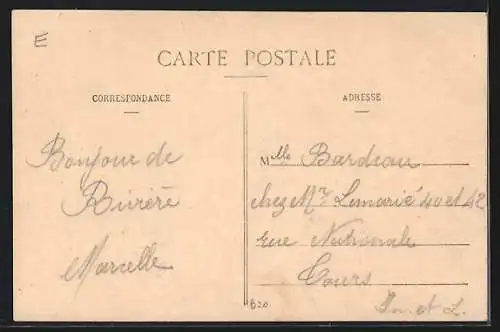 E
CARTE POSTALE
CORRESPONDANCE
Bonjour de
Rivière
Marcelle
ADRESSE
Mlle Bardeau
chez Mr Limarié 40 et 42
rue Nationale
Tours
In. et L.